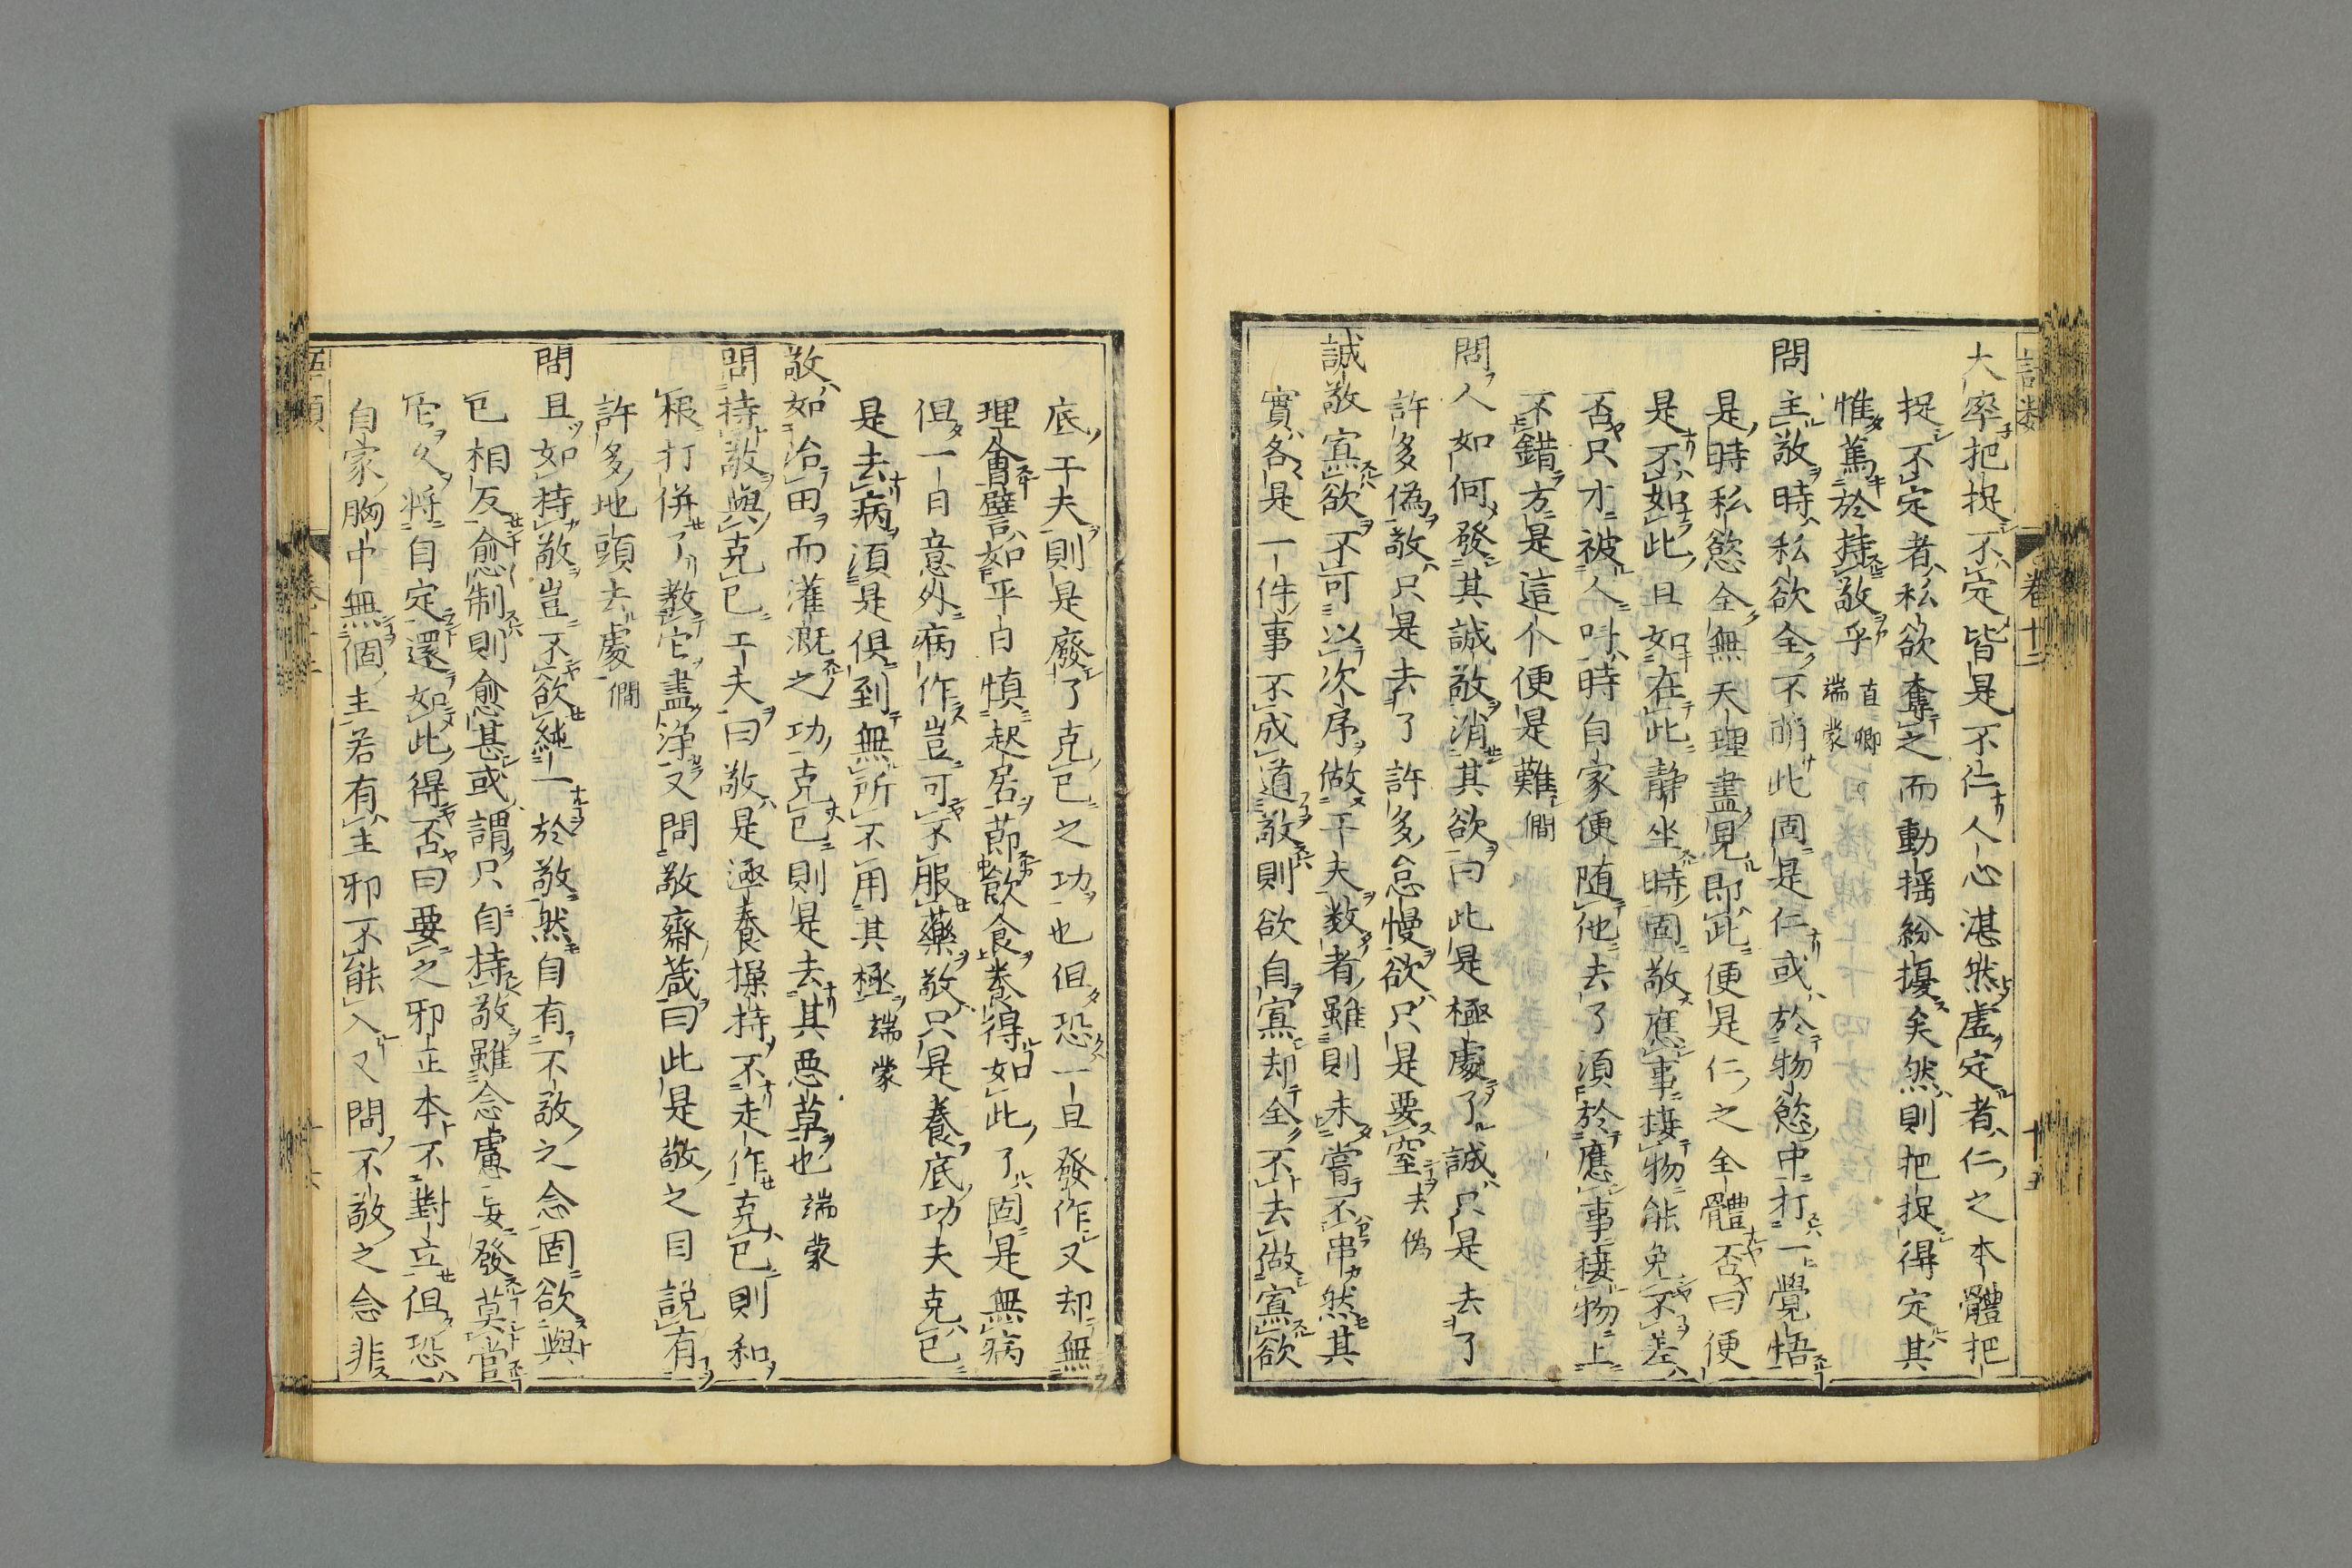 大率把捉不定皆是不仁人心湛然虛定者仁之本體把
捉不定者私欲奪之而動搖紛擾矣然則把捉得定其
惟篤於持敬乎 直卿 端蒙
問主敬時私欲全不萌此固是仁或於物慾中打一覺悟
是時私慾全無天理盡見即此便是仁之全體否曰便
是不如此且如在此靜坐時固敬應事接物能免不差
否只才被人叫時自家便随他去了須於應事接物上
不錯方是這个便是難 僩
問人如何發其誠敬消其欲曰此是極處了誠只是去了
許多偽敬只是去了許多怠慢欲只是要窒 去偽
誠敬寡欲不可以次序做工夫数者雖則未嘗不串然其
實各是一件事不成道敬則欲自寡却全不去做寡欲
底工夫則是廢了克己之功也但恐一旦發作又却無
理會譬如平日慎起居節飲食養得如此了固是無病
但一日意外病作豈可不服藥敬只是養底功夫克己
是去病須是俱到無所不用其極 端蒙
敬如治田而灌漑之功克己則是去其惡草也 端蒙
問持敬與克己工夫曰敬是涵養操持不走作克己則和
根打併了教它盡淨又問敬齋箴曰此是敬之目説有
許多地頭去處 僩
問且如持敬豈不欲純一於敬然自有不敬之念固欲與
己相反愈制則愈甚或謂只自持敬雖念慮妄發莫管
它久将自定還如此得否曰要之邪正本不對立但恐
自家胸中無個主若有主邪不能入又問不敬之念非